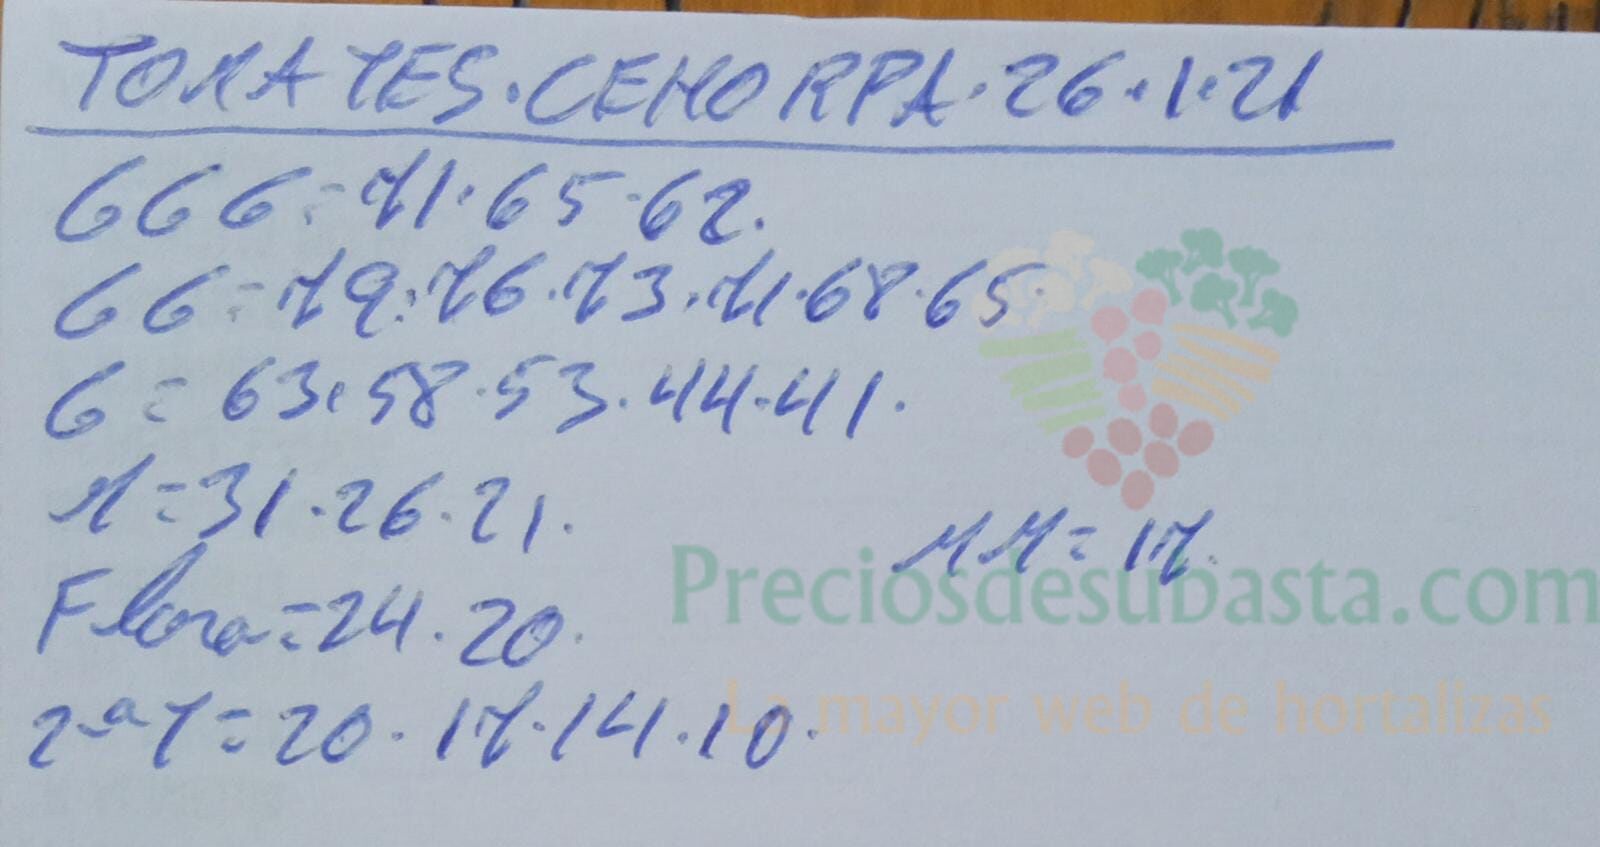 TOMATES·CEHORPA·26·1·21
GGG=71·65·62.
GG=79·76·73·71·68·65·
G=63·58·53·44·41.
M=31·26·21.
MM=17.
Preciosdesubasta.com
Flora=24·20.
La mayor web de hortalizas
2ªT=20·17·14·10.